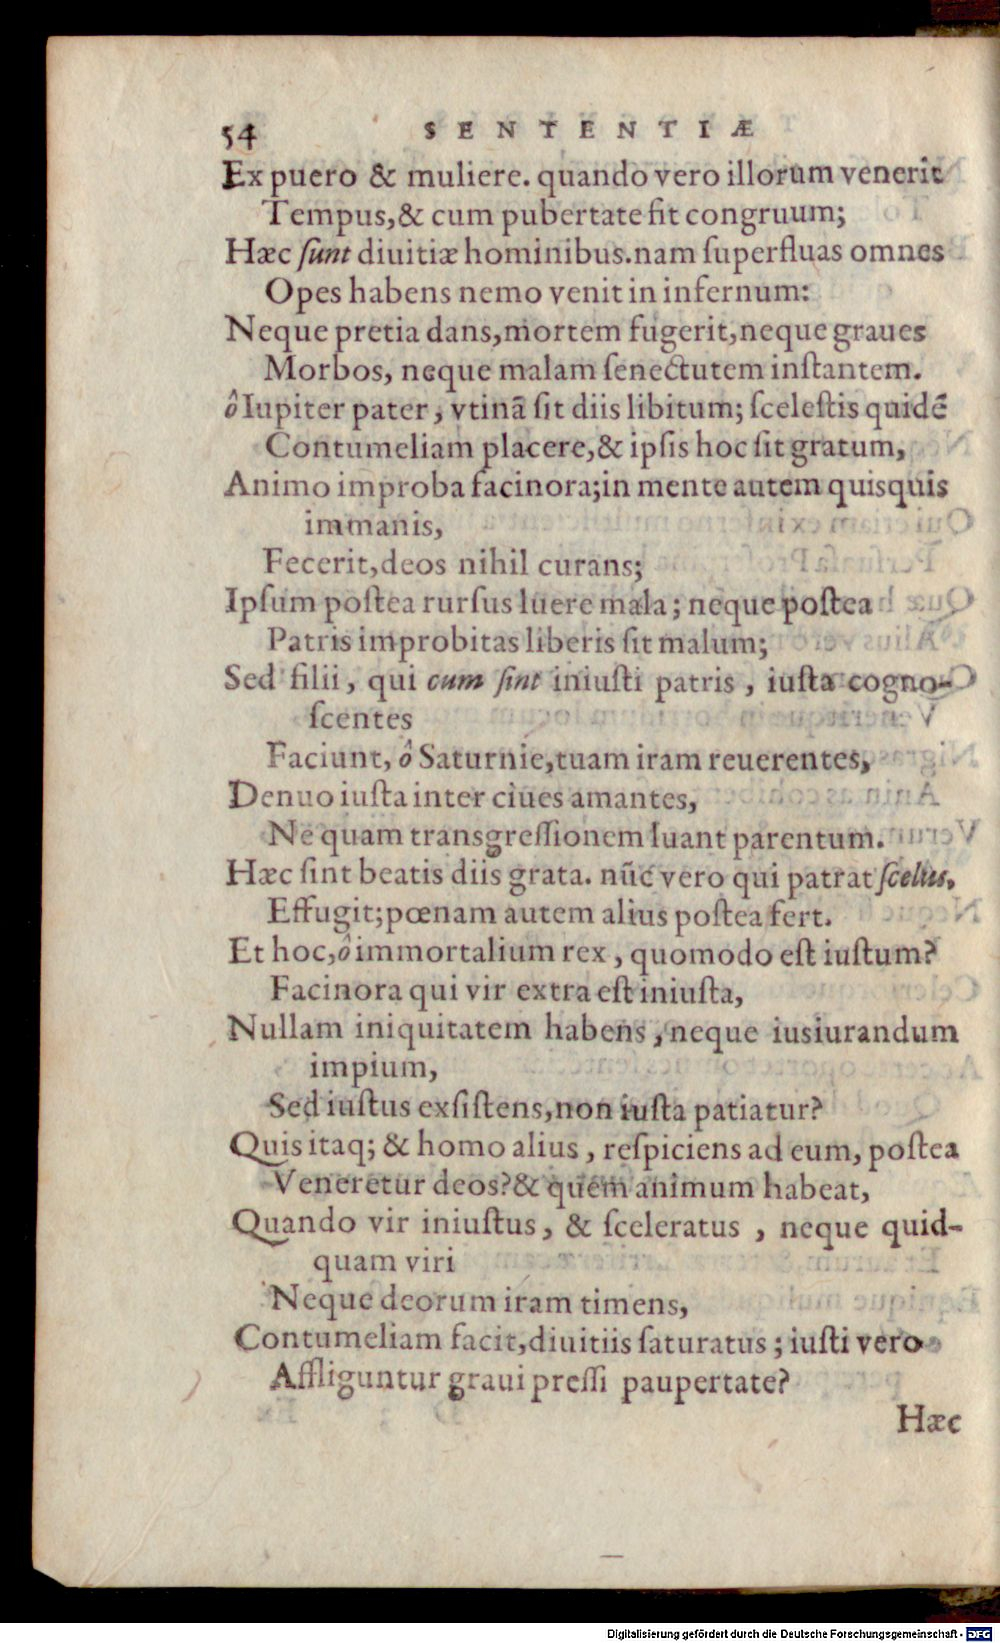 54 SENTENTIÆ
Ex puero & muliere. quando vero illorum venerit
Tempus, & cum pubertate fit congruum;
Hæc ſunt diuitiæ hominibus. nam ſuperfluas omnes
Opes habens nemo venit in infernum:
Neque pretia dans, mortem fugerit, neque graues
Morbos, neque malam ſenectutem inſtantem.
ô Iupiter pater, vtinã ſit diis libitum; ſceleſtis quidẽ
Contumeliam placere, & ipſis hoc ſit gratum,
Animo improba facinora; in mente autem quisquis
immanis,
Fecerit, deos nihil curans;
Ipſum poſtea rurſus luere mala; neque poſtea
Patris improbitas liberis ſit malum;
Sed filii, qui cum ſint iniuſti patris, iuſta cogno-
ſcentes
Faciunt, ô Saturnie, tuam iram reuerentes,
Denuo iuſta inter ciues amantes,
Ne quam transgreſſionem luant parentum.
Hæc ſint beatis diis grata. nũc vero qui patrat ſcelus,
Effugit; pœnam autem alius poſtea fert.
Et hoc, ô immortalium rex, quomodo eſt iuſtum?
Facinora qui vir extra eſt iniuſta,
Nullam iniquitatem habens, neque iusiurandum
impium,
Sed iuſtus exſiſtens, non iuſta patiatur?
Quis itaq; & homo alius, reſpiciens ad eum, poſtea
Veneretur deos? & quem animum habeat,
Quando vir iniuſtus, & ſceleratus, neque quid-
quam viri
Neque deorum iram timens,
Contumeliam facit, diuitiis ſaturatus; iuſti vero
Affliguntur graui preſſi paupertate?
Hæc
Digitalisierung gefördert durch die Deutsche Forschungsgemeinschaft - DFG